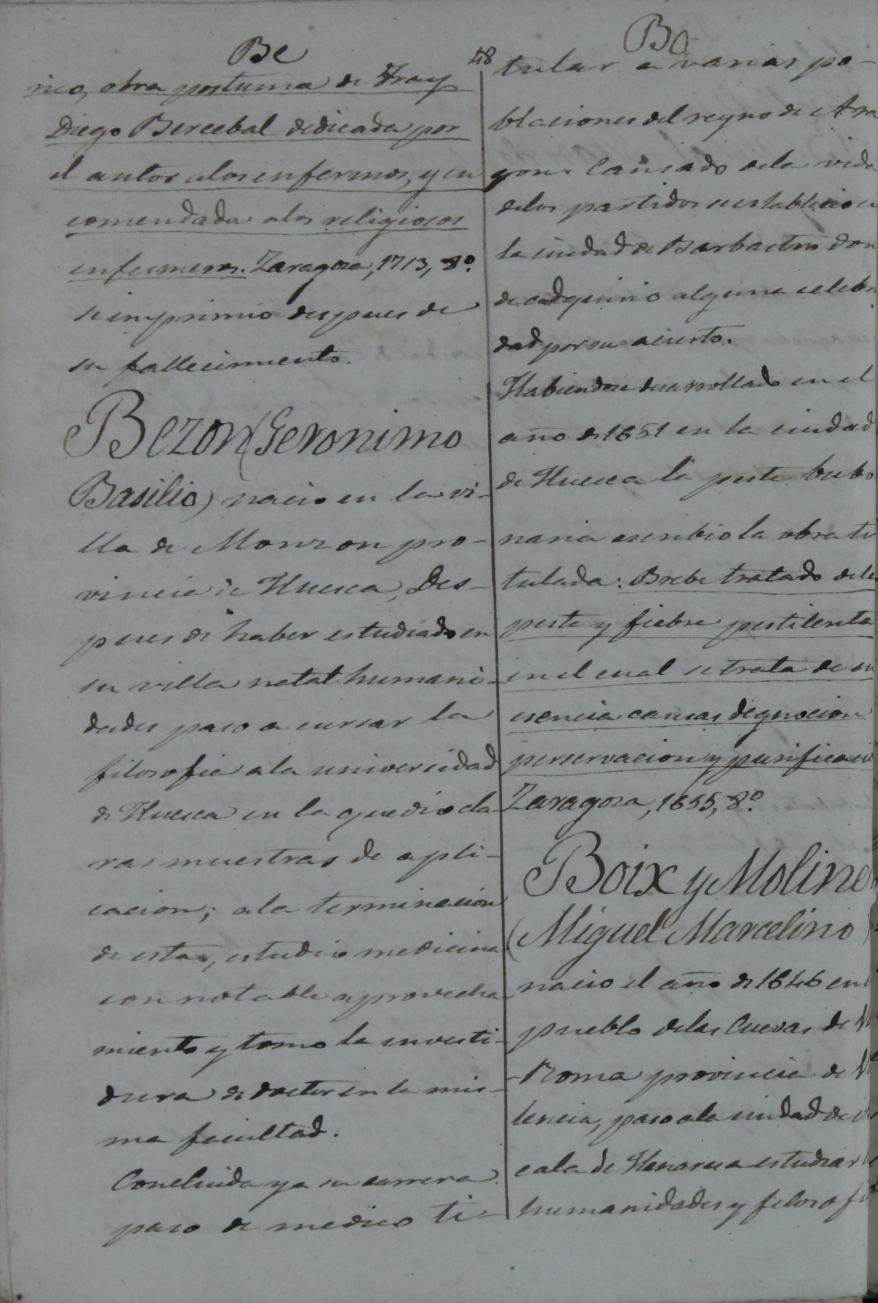 Be
48
rico, obra postuma de Fray
Diego Bercebal dedicada por
el autor a los enfermos, y en
comendada a los religiosos
enfermeros. Zaragoza, 1713, 8º.
se imprimio despues de
su fallecimiento.
Bezon (Geronimo
Basilio) nacio en la vi-
lla de Monzon pro-
vincia de Huesca, Des-
pues de haber estudiado en
su villa natal humani-
dades paso a cursar la
filosofia a la universidad
de Huesca en la que dio cla-
ras muestras de apli-
cacion; a la terminacion
de esta, estudio medicina
con notable aprovecha
miento y tomo la investi-
dura de doctor en la mis-
ma facultad.
Concluida ya su carrera
paso de medico ti-
Bo
tular a varias po-
blaciones del reyno de Ara
gon. Cansado de la vida
de los partidos se establecio e
la ciudad de Barbastro don
de adquirio alguna celebri
dad por su acierto.
Habiendose desarrollado en el
año de 1651 en la ciudad
de Huesca la peste bubo
naria escribio la obra ti
tulada: Brebe tratado de la
peste y fiebre pestilenta
en el cual se trata de su
esencia causas dignocion
perservacion y purificacio
Zaragoza, 1655, 8º.
Boix y Moline
(Miguel Marcelino)
nacio el año de 1646 en
pueblo de las Cuevas de
Roma provincia de
lencia, paso a la ciudad de
cala de Henares a estudiar
humanidades y filosofi